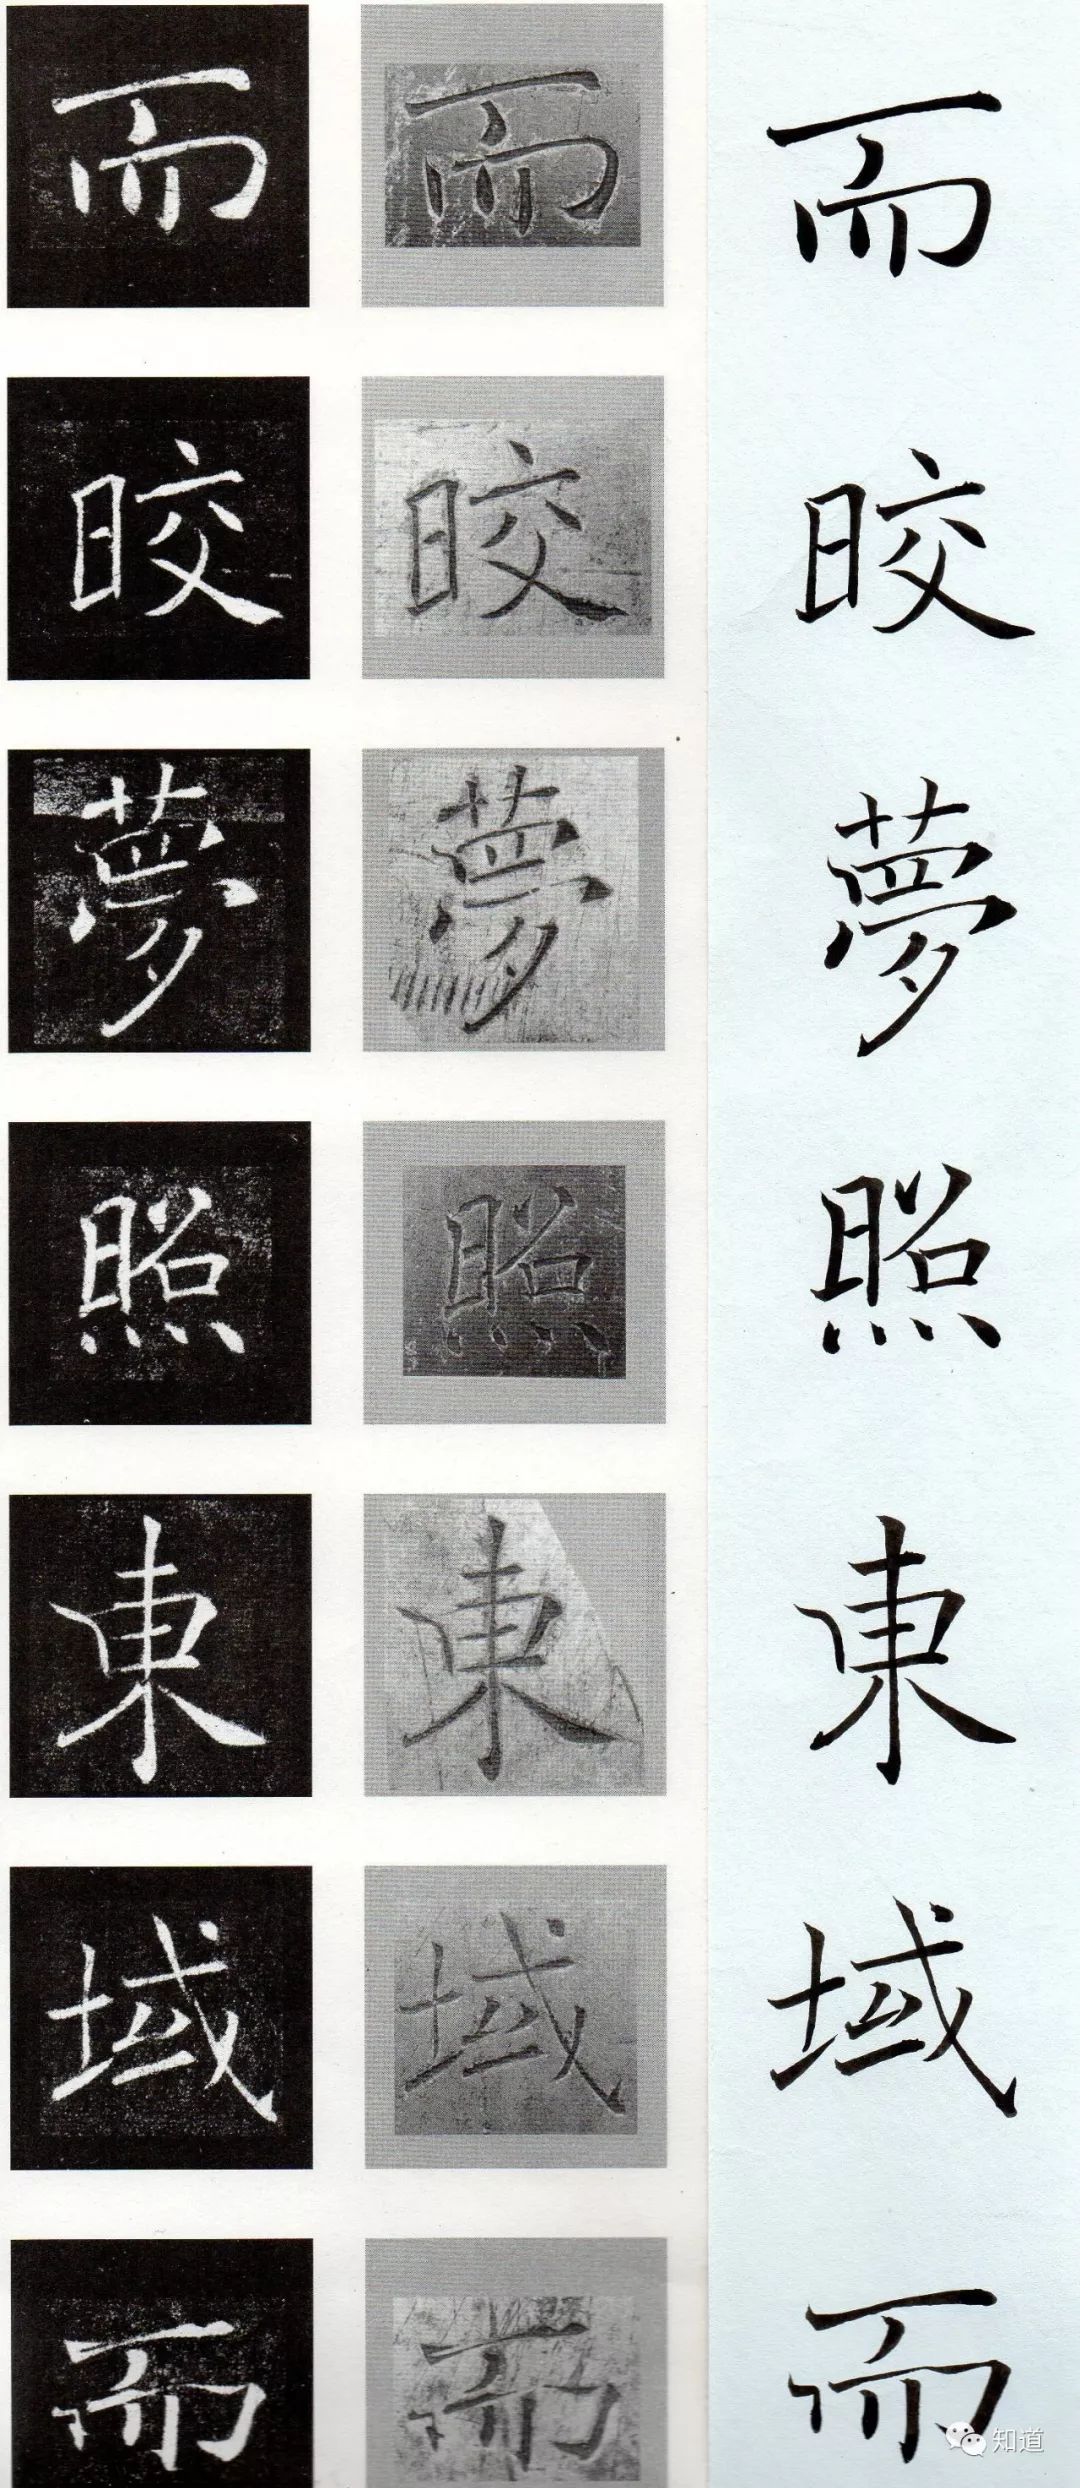 而 而 而
晈 晈 晈
夢 夢 夢
照 照 照
東 東 東
域 域 域
而 而 而
知道